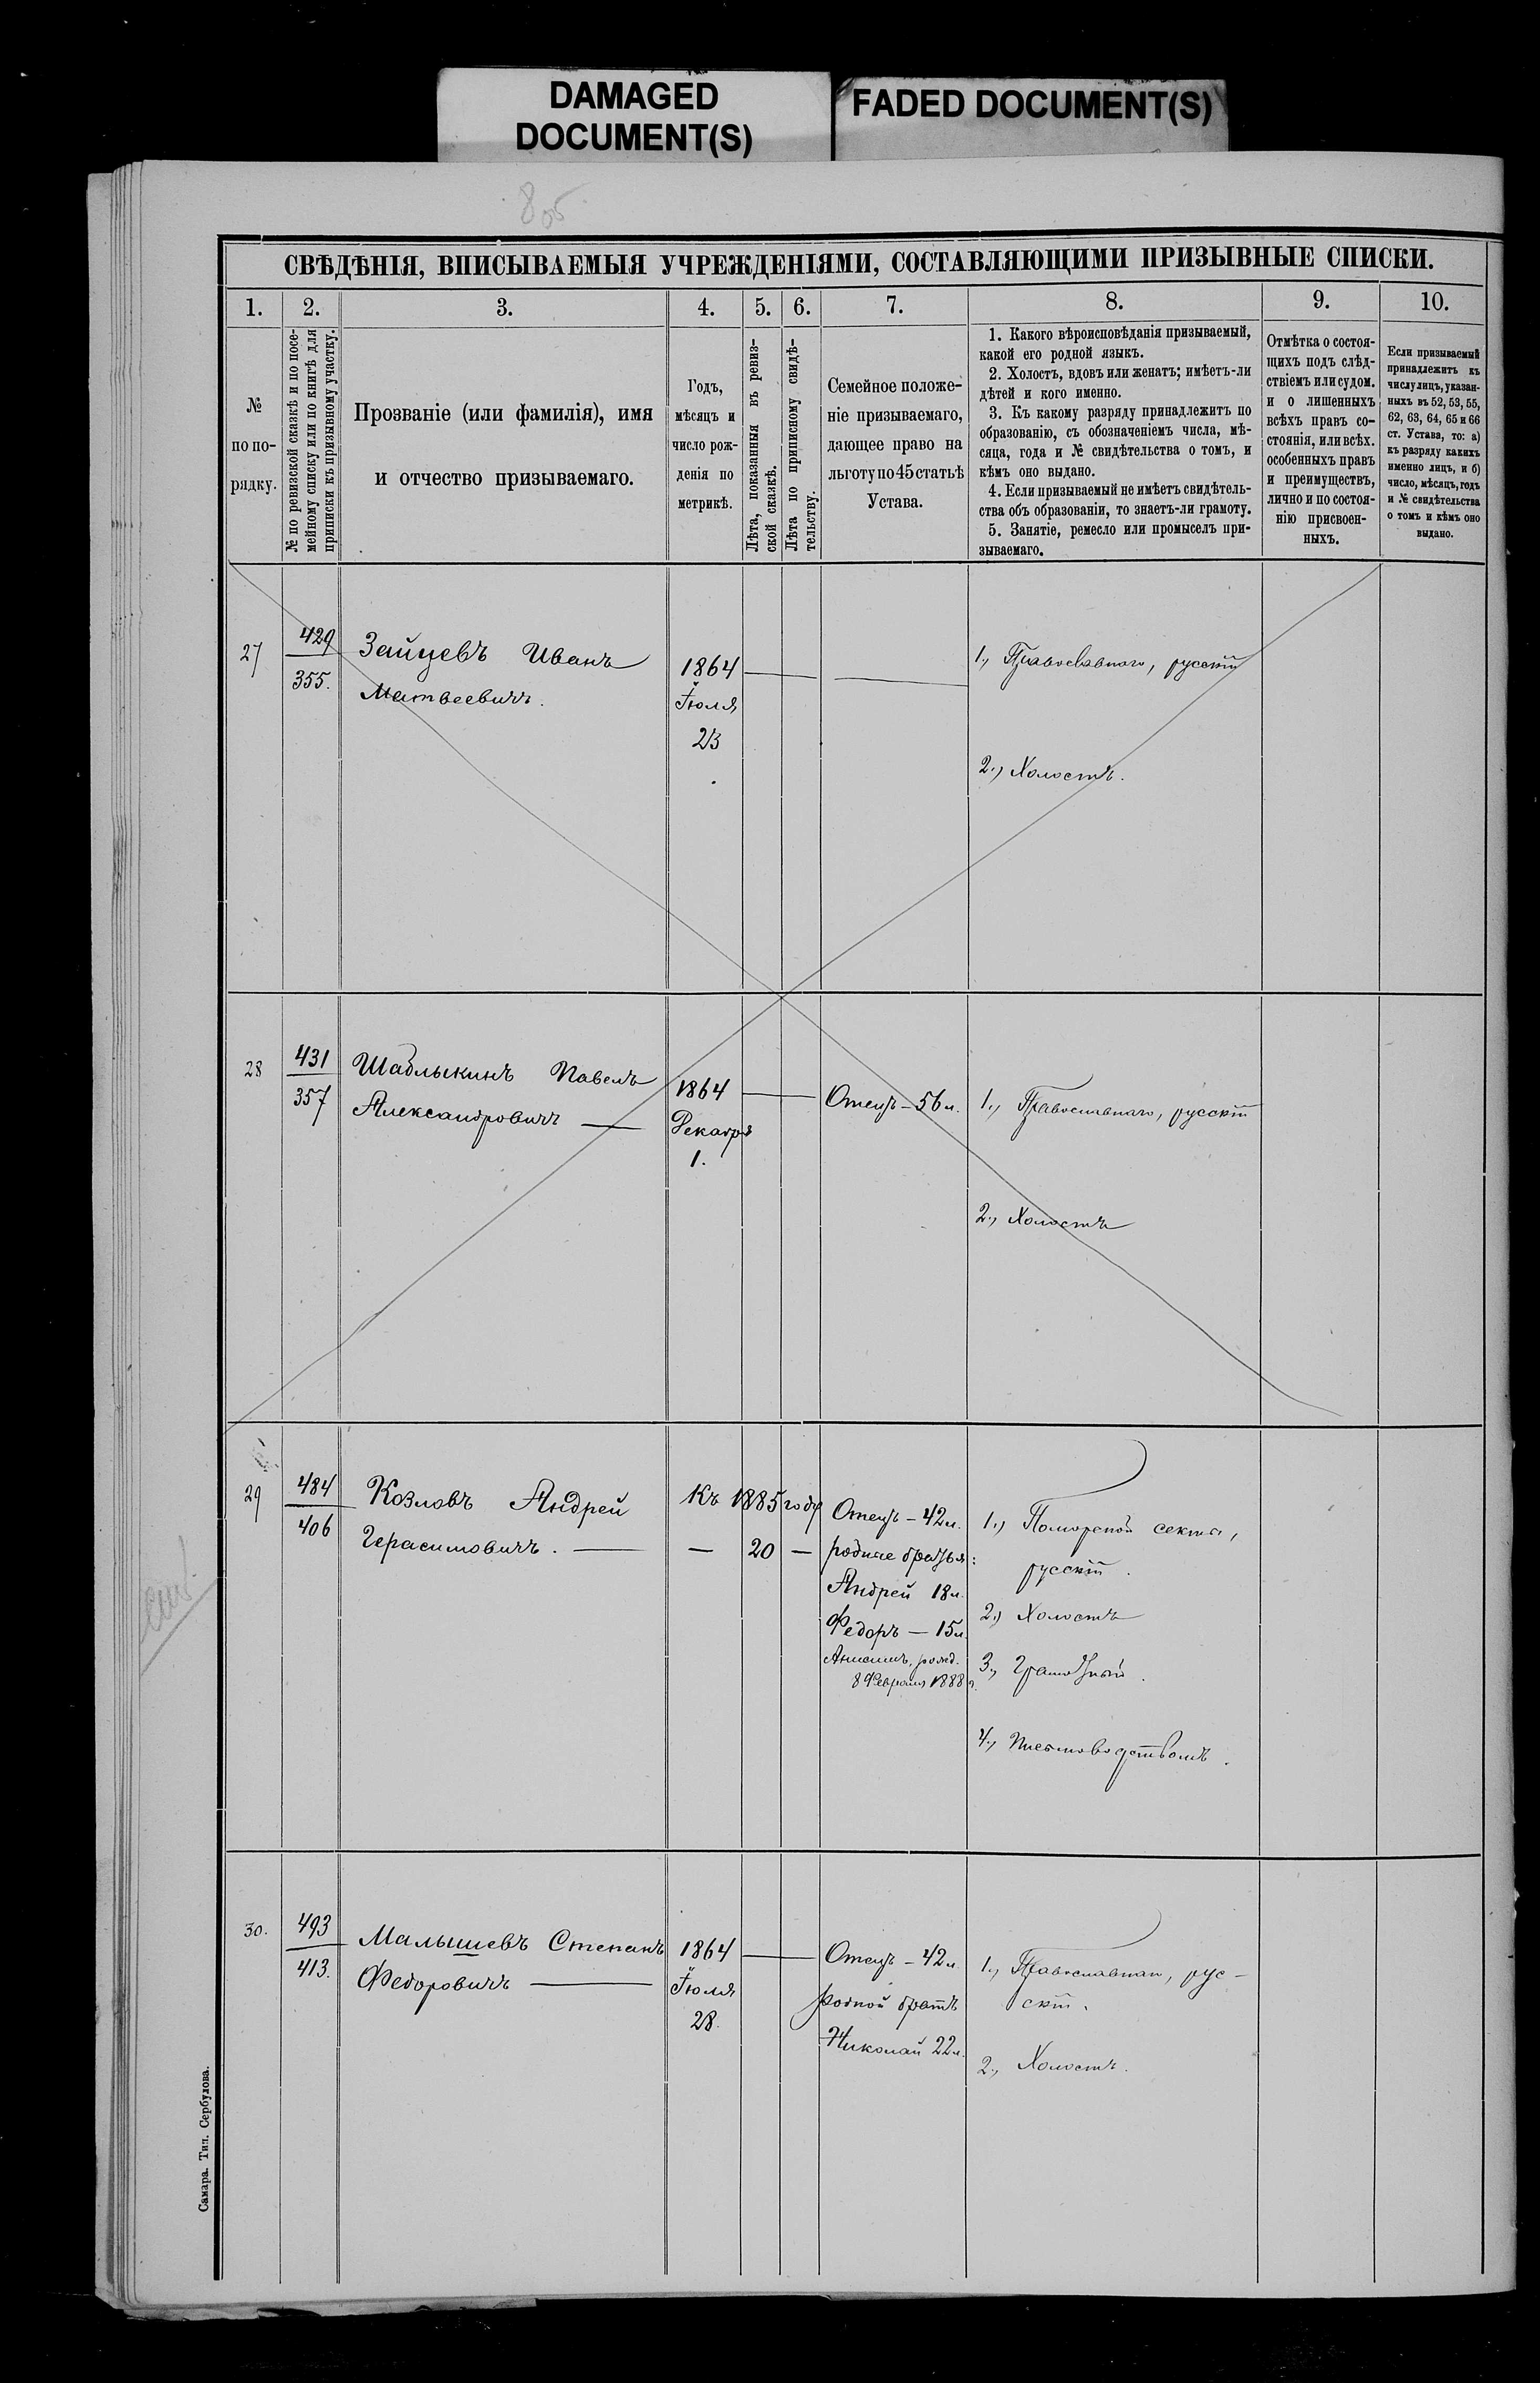 DAMAGED
DOCUMENT(S)
FADED DOCUMENT(S)
805
СВѢДѢНІЯ, ВПИСЫВАЕМЫЯ УЧРЕЖДЕНІЯМИ, СОСТАВЛЯЮЩИМИ ПРИЗЫВНЫЕ СПИСКИ.
1.
2.
3.
4.
5.
6.
7.
8.
9.
10.
№
по по-
рядку.
№ по ревизской сказкѣ и по посе-
мейному списку или по книгѣ для
приписки къ призывному участку.
Прозваніе (или фамилія), имя
и отчество призываемаго.
Годъ,
мѣсяцъ и
число рож-
денія по
метрикѣ.
Лѣта, показанныя въ ревиз-
ской сказкѣ.
Лѣта по приписному свидѣ-
тельству.
Семейное положе-
ніе призываемаго,
дающее право на
льготу по 45 статьѣ
Устава.
1. Какого вѣроисповѣданія призываемый,
какой его родной языкъ.
2. Холостъ, вдовъ или женатъ; имѣетъ-ли
дѣтей и кого именно.
3. Къ какому разряду принадлежитъ по
образованію, съ обозначеніемъ числа, мѣ-
сяца, года и № свидѣтельства о томъ, и
кѣмъ оно выдано.
4. Если призываемый не имѣетъ свидѣтель-
ства объ образованіи, то знаетъ-ли грамоту.
5. Занятіе, ремесло или промыселъ при-
зываемаго.
Отмѣтка о состоя-
щихъ подъ слѣд-
ствіемъ или судом.
и о лишенныхъ
всѣхъ правъ со-
стоянія, или всѣх.
особенныхъ правъ
и преимуществъ,
лично и по состоя-
нію присвоен-
ныхъ.
Если призываемый
принадлежитъ къ
числу лицъ, указан-
ныхъ въ 52, 53, 55,
62, 63, 64, 65 и 66
ст. Устава, то: а)
къ разряду какихъ
именно лицъ, и б)
число, мѣсяцъ, годъ
и № свидѣтельства
о томъ и кѣмъ оно
выдано.
27
429
355.
Зайцевъ Иванъ
Матвеевичъ.
1864
Іюля
23
1., Православнаго, русскій
2., Холостъ.
28
431
357
Шаблыкинъ Павелъ
Александровичъ —
1864
Декабря
1.
Отецъ – 56 л.
1., Православнаго, русскій
2., Холостъ
29
484
406
Козловъ Андрей
Герасимовичъ. —
Къ 1885 году
— 20 —
Отецъ – 42 л.
родные братья:
Андрей 18 л.
Федоръ – 15 л.
Анисимъ, рожд.
8 Февраля 1888 г.
1., Поморской секты,
русскій.
2., Холостъ
3., Грамотный.
4., Письмоводствомъ.
30.
493
413.
Малышевъ Степанъ
Федоровичъ —
1864
Іюля
28.
Отецъ – 42 л.
родной братъ
Николай 22 л.
1., Православнаго, рус-
скій.
2., Холостъ.
Самара. Тип. Сербулова.